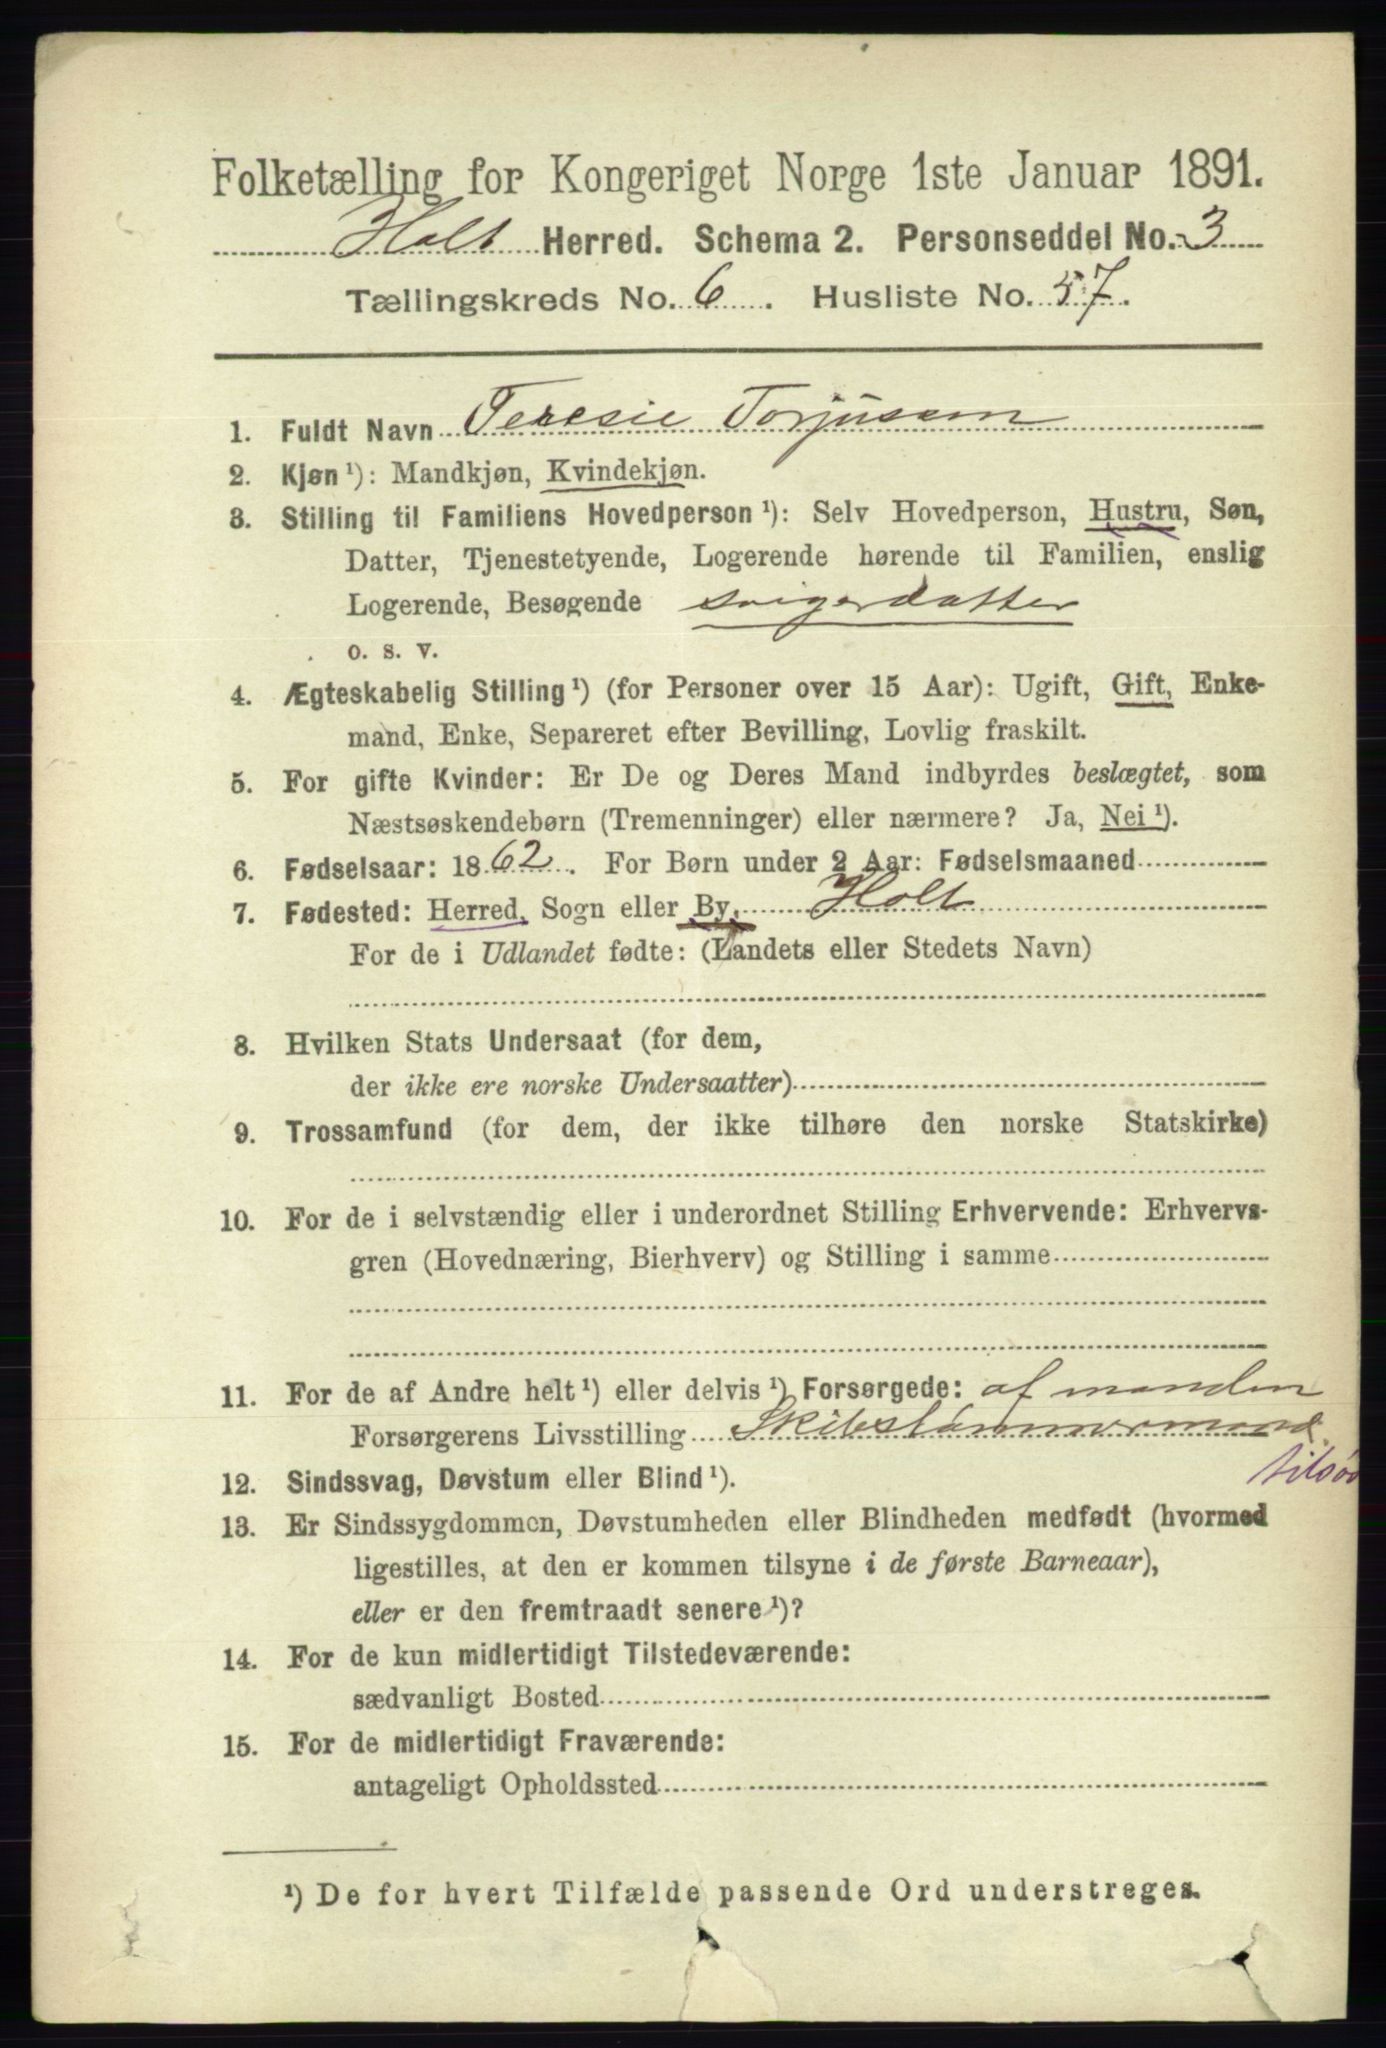 Folketælling for Kongeriget Norge 1ste Januar 1891.
Holt Herred. Schema 2. Personseddel No. 3
Tællingskreds No. 6. Husliste No. 57.
1. Fuldt Navn Teresie Torjussen
2. Kjøn¹): Mandkjøn, Kvindekjøn.
3. Stilling til Familiens Hovedperson¹): Selv Hovedperson, Hustru, Søn,
Datter, Tjenestetyende, Logerende hørende til Familien, enslig
Logerende, Besøgende svigerdatter
o. s. v.
4. Ægteskabelig Stilling¹) (for Personer over 15 Aar): Ugift, Gift, Enke-
mand, Enke, Separeret efter Bevilling, Lovlig fraskilt.
5. For gifte Kvinder: Er De og Deres Mand indbyrdes beslægtet, som
Næstsøskendebørn (Tremenninger) eller nærmere? Ja, Nei¹).
6. Fødselsaar: 1862. For Børn under 2 Aar: Fødselsmaaned
7. Fødested: Herred, Sogn eller By, Holt
For de i Udlandet fødte: (Landets eller Stedets Navn)
8. Hvilken Stats Undersaat (for dem,
der ikke ere norske Undersaatter)
9. Trossamfund (for dem, der ikke tilhøre den norske Statskirke)
10. For de i selvstændig eller i underordnet Stilling Erhvervende: Erhvervs-
gren (Hovednæring, Bierhverv) og Stilling i samme
11. For de af Andre helt¹) eller delvis¹) Forsørgede: af manden
Forsørgerens Livsstilling Skibstømmermand
tilsøs
12. Sindssvag, Døvstum eller Blind¹).
13. Er Sindssygdommen, Døvstumheden eller Blindheden medfødt (hvormed
ligestilles, at den er kommen tilsyne i de første Barneaar),
eller er den fremtraadt senere¹)?
14. For de kun midlertidigt Tilstedeværende:
sædvanligt Bosted
15. For de midlertidigt Fraværende:
antageligt Opholdssted
¹) De for hvert Tilfælde passende Ord understreges.